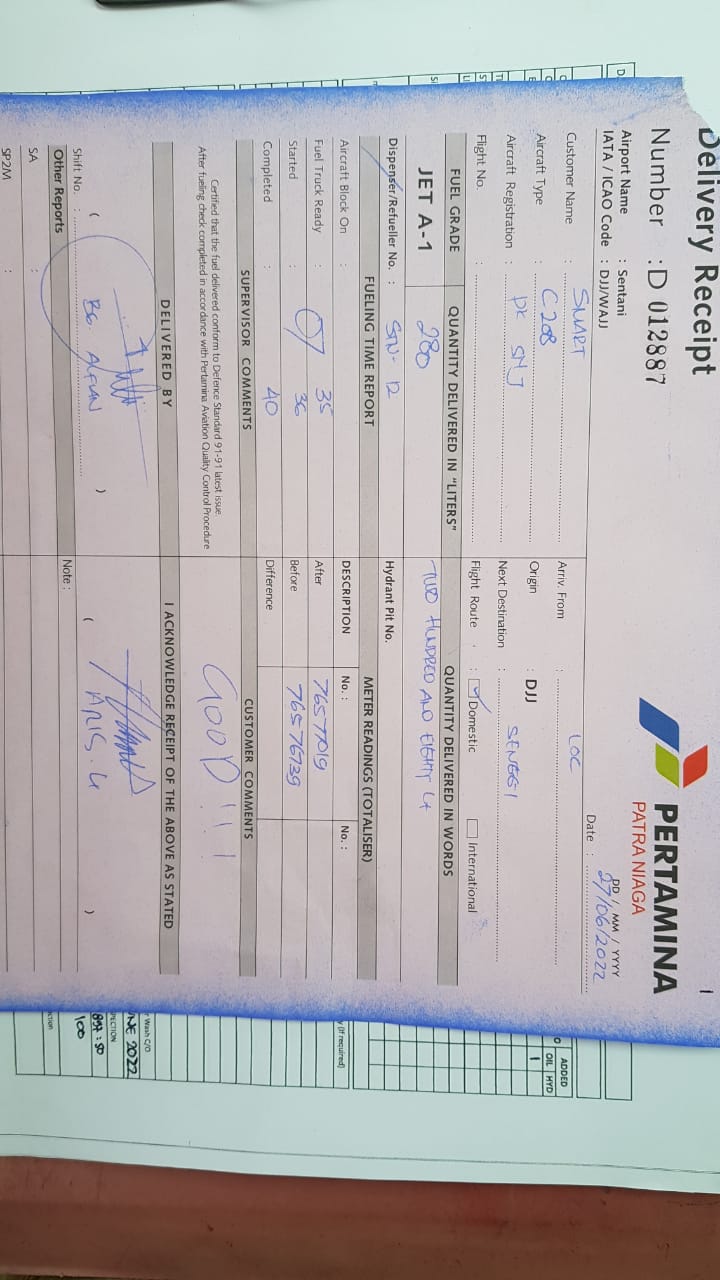 Delivery Receipt
PERTAMINA
PATRA NIAGA
Number : D 012887
DD / MM / YYYY
Date : 27/06/2022
Airport Name : Sentani
IATA / ICAO Code : DJJ/WAJJ
Customer Name : SMART
Arriv. From : LOC
Aircraft Type : C 208
Origin : DJJ
Aircraft Registration : PK SNJ
Next Destination : SENGGI
Flight No. :
Flight Route : Domestic International
FUEL GRADE QUANTITY DELIVERED IN "LITERS" QUANTITY DELIVERED IN WORDS
JET A-1 280 TWO HUNDRED AND EIGHTY L
Dispenser/Refueller No. : SIN-12 Hydrant Pit No.
FUELING TIME REPORT METER READINGS (TOTALISER)
Aircraft Block On : DESCRIPTION No. : No. :
Fuel Truck Ready : 07 35 After 7657019
Started : 36 Before 76576739
Completed : 40 Difference
SUPERVISOR COMMENTS CUSTOMER COMMENTS
Certified that the fuel delivered conform to Defence Standard 91-91 latest issue
After fueling check completed in accordance with Pertamina Aviation Quality Control Procedure
GOOD!!!
DELIVERED BY I ACKNOWLEDGE RECEIPT OF THE ABOVE AS STATED
( ) ( ARIS. L )
Shift No. :
Other Reports Note :
SA :
SP2M :
ADDED
OIL HYD
1
y (if required)
r Wash C/O
UNE 2022
PECTION
100